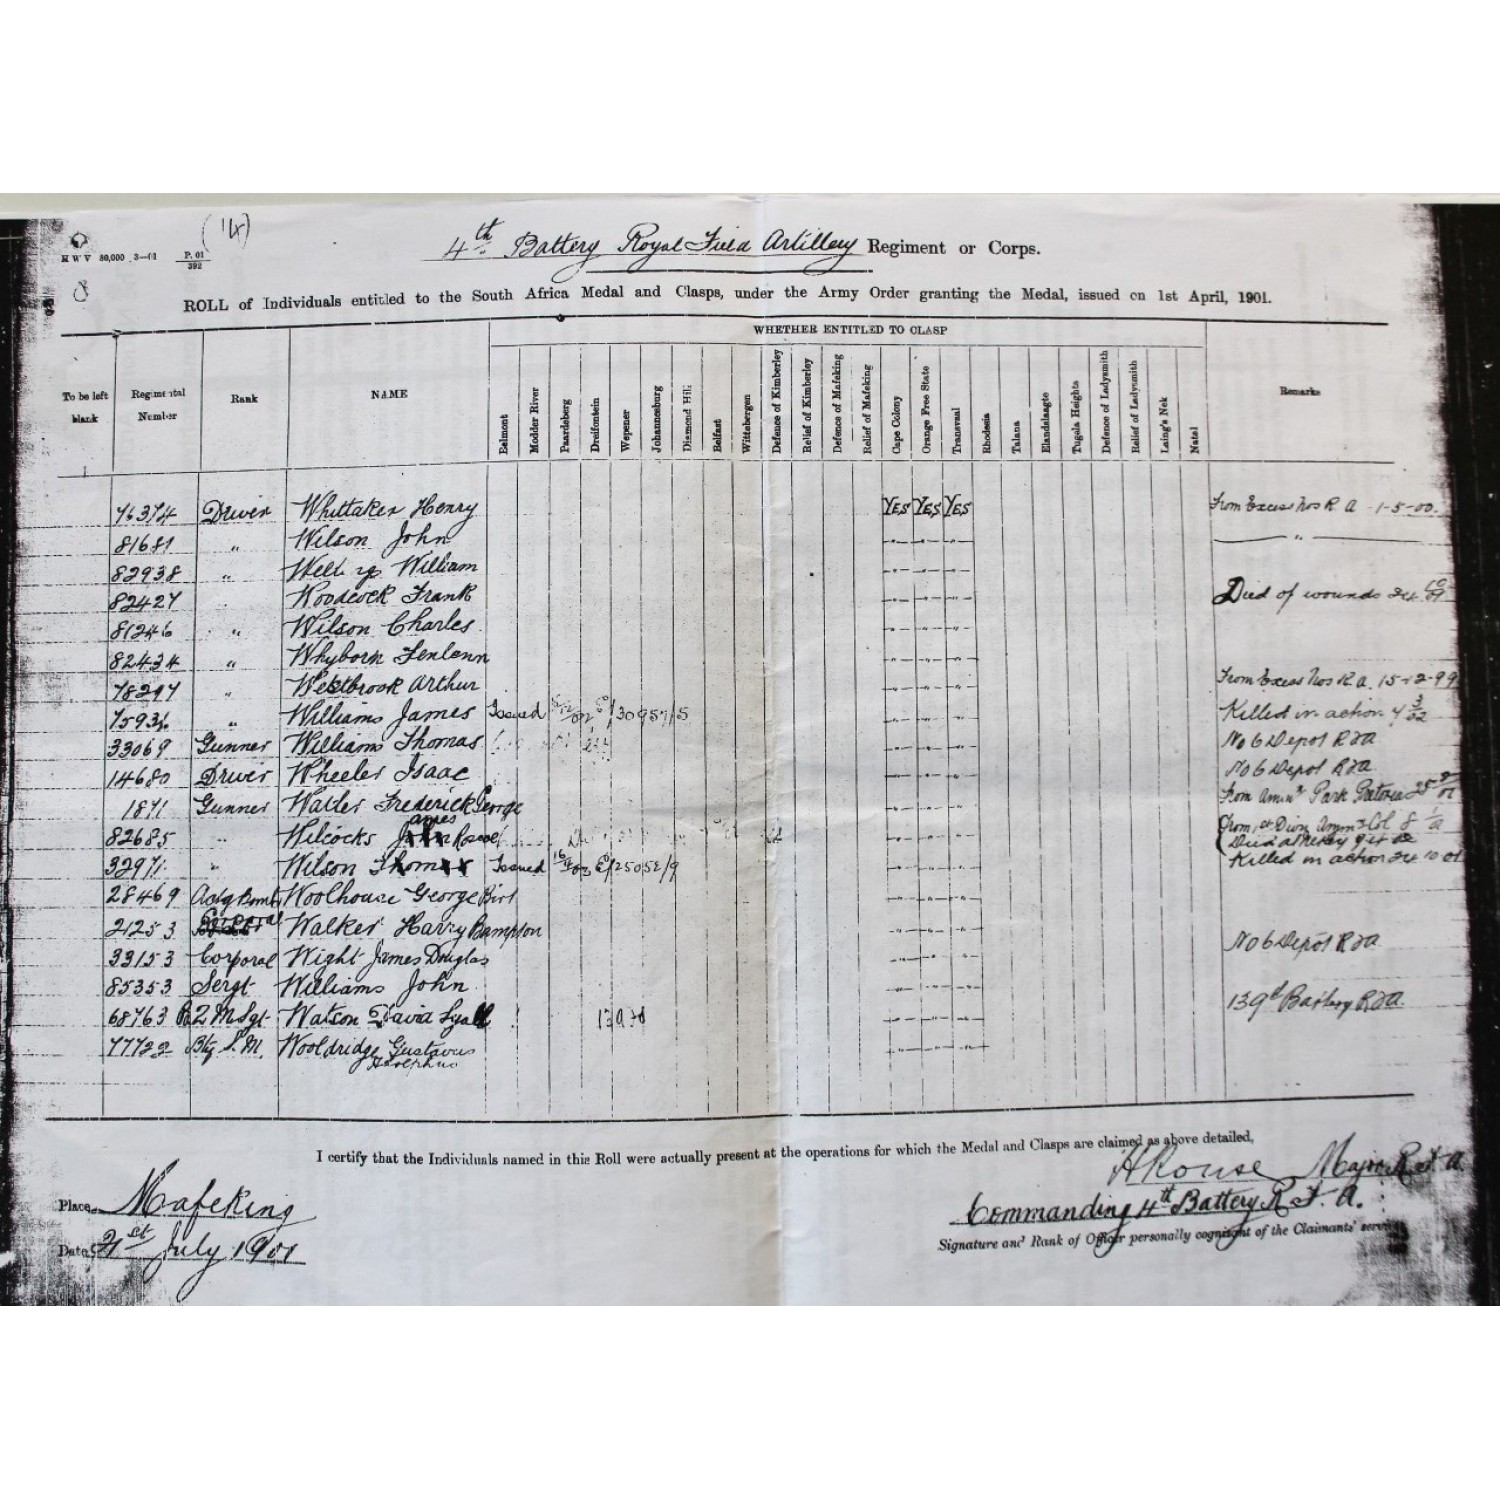 (14)
H W V 80,000 3—01 P. 01 / 392
4th Battery Royal Field Artillery Regiment or Corps.
ROLL of Individuals entitled to the South Africa Medal and Clasps, under the Army Order granting the Medal, issued on 1st April, 1901.
WHETHER ENTITLED TO CLASP
To be left blank Regimental Number Rank NAME Belmont Modder River Paardeberg Dreifontein Wepener Johannesburg Diamond Hill Belfast Wittebergen Defence of Kimberley Relief of Kimberley Defence of Mafeking Relief of Mafeking Cape Colony Orange Free State Transvaal Rhodesia Talana Elandslaagte Tugela Heights Defence of Ladysmith Relief of Ladysmith Laing's Nek Natal Remarks
76374 Driver Whittaker Henry YES YES YES From Excess Nos R A 1-5-00.
81681 " Wilson John " " " "
82938 " William " " "
82427 Woodcock Frank " " " Died of wounds 24
81246 " Wilson Charles " " "
82434 " Whyborn " " "
78297 " Westbrook Arthur " " " From Excess Nos R A. 15-12-99
" Williams James Issued 30957/5 " " " Killed in action 4 3/02
33069 Gunner Williams Thomas " " " No 6 Depot RFA
14680 Driver Wheeler Isaac " " " No 6 Depot RFA
1871 Gunner Frederick George " " " From Park Pretoria
82685 " Wilcocks James " " " From
Died
32971 " Wilson Issued 25052/9 " " " Killed in action 24 10 01
28469 Actg Bomb Woolhouse George " " "
21253 Corporal Walker Harry Bampton " " " No 6 Depot RFA
33153 Corporal Wight James Douglas " " "
85353 Sergt Williams John " " " 139th Battery RFA.
68763 Watson David " " "
Bty S. M. Wooldridge Gustavus Adolphus " " "
I certify that the Individuals named in this Roll were actually present at the operations for which the Medal and Clasps are claimed as above detailed,
HRouse Major R F A
Place Mafeking Commanding 4th Battery R. F. A.
Date 21st July 1901 Signature and Rank of Officer personally cognisant of the Claimants' services